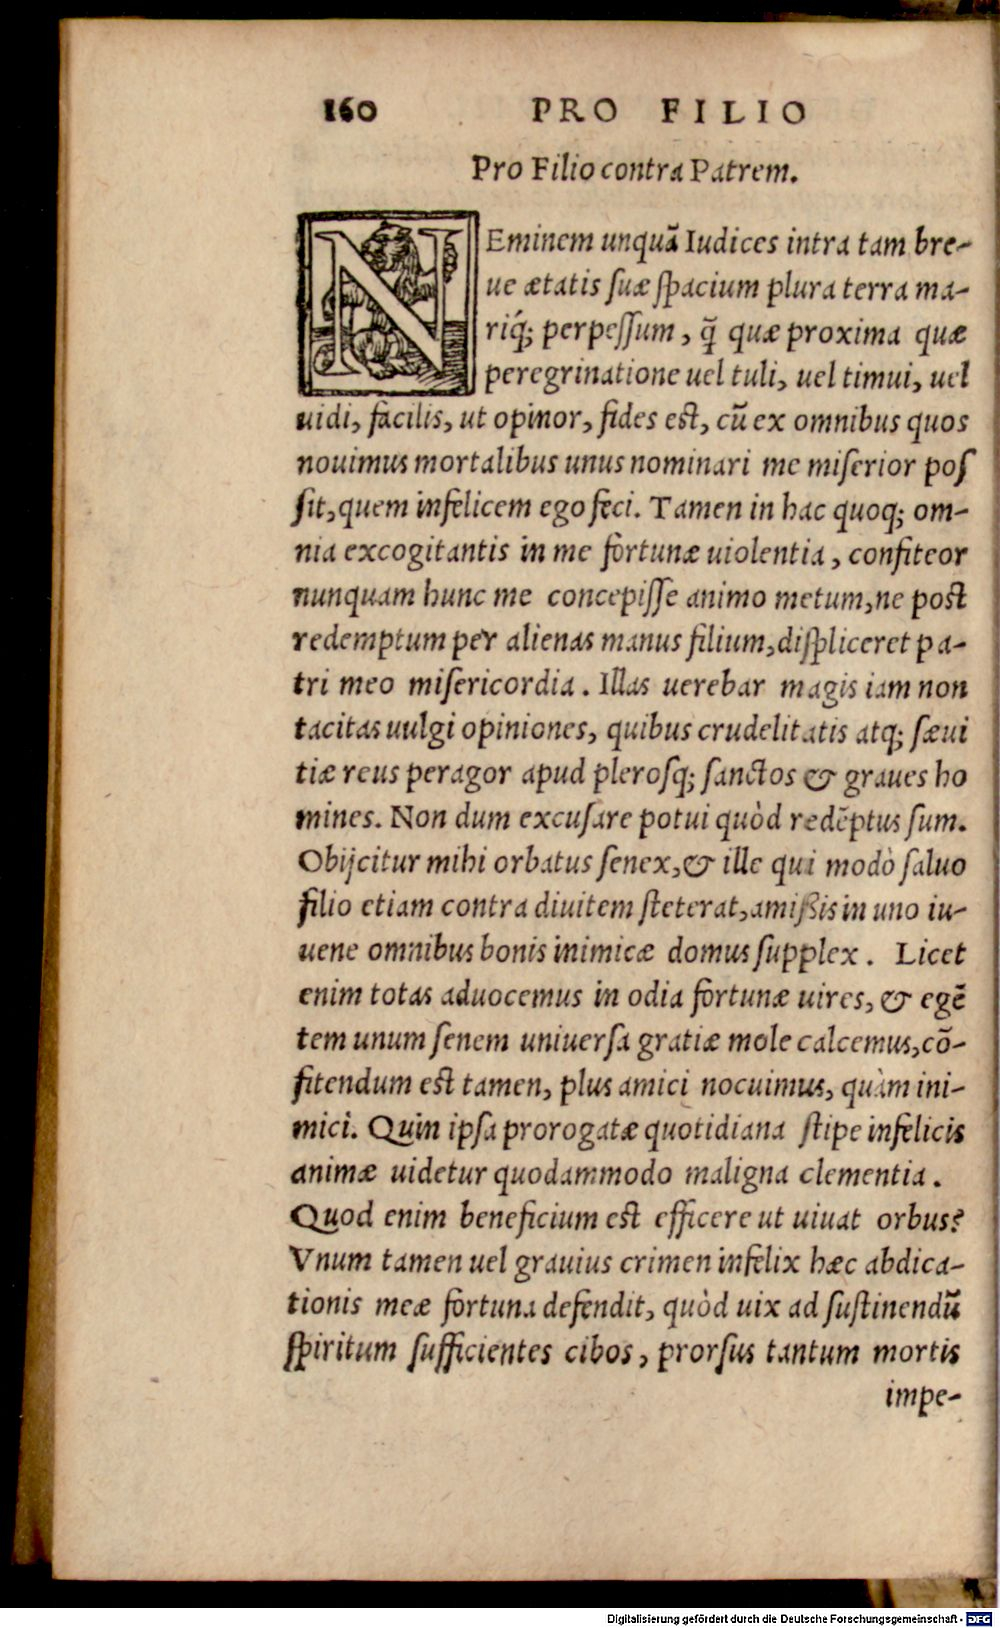 160 PRO FILIO
Pro Filio contra Patrem.
NEminem unquā Iudices intra tam bre-
ue ætatis suæ spacium plura terra ma-
riq́; perpessum, q̄ quæ proxima quæ
peregrinatione uel tuli, uel timui, uel
uidi, facilis, ut opinor, fides est, cū ex omnibus quos
nouimus mortalibus unus nominari me miserior pos
sit, quem infelicem ego feci. Tamen in hac quoq; om-
nia excogitantis in me fortunæ uiolentia, confiteor
nunquam hunc me concepisse animo metum, ne post
redemptum per alienas manus filium, displiceret pa-
tri meo misericordia. Illas uerebar magis iam non
tacitas uulgi opiniones, quibus crudelitatis atq; sæui
tiæ reus peragor apud plerosq; sanctos & graues ho
mines. Non dum excusare potui quòd redēptus sum.
Obijcitur mihi orbatus senex, & ille qui modò saluo
filio etiam contra diuitem steterat, amißis in uno iu-
uene omnibus bonis inimicæ domus supplex. Licet
enim totas aduocemus in odia fortunæ uires, & egē
tem unum senem uniuersa gratiæ mole calcemus, cō-
fitendum est tamen, plus amici nocuimus, quàm ini-
mici. Quin ipsa prorogatæ quotidiana stipe infelicis
animæ uidetur quodammodo maligna clementia.
Quod enim beneficium est efficere ut uiuat orbus?
Vnum tamen uel grauius crimen infelix hæc abdica-
tionis meæ fortuna defendit, quòd uix ad sustinendū
spiritum sufficientes cibos, prorsus tantum mortis
impe-
Digitalisierung gefördert durch die Deutsche Forschungsgemeinschaft - DFG